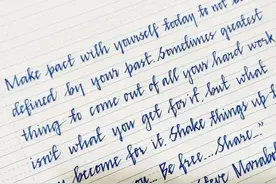 Make pact with yourself today to not be
defined by your past. Sometimes greatest
thing to come out of all your hard work
isn't what you get for it, but what
become for it. Shake things up
Be free... Share..."